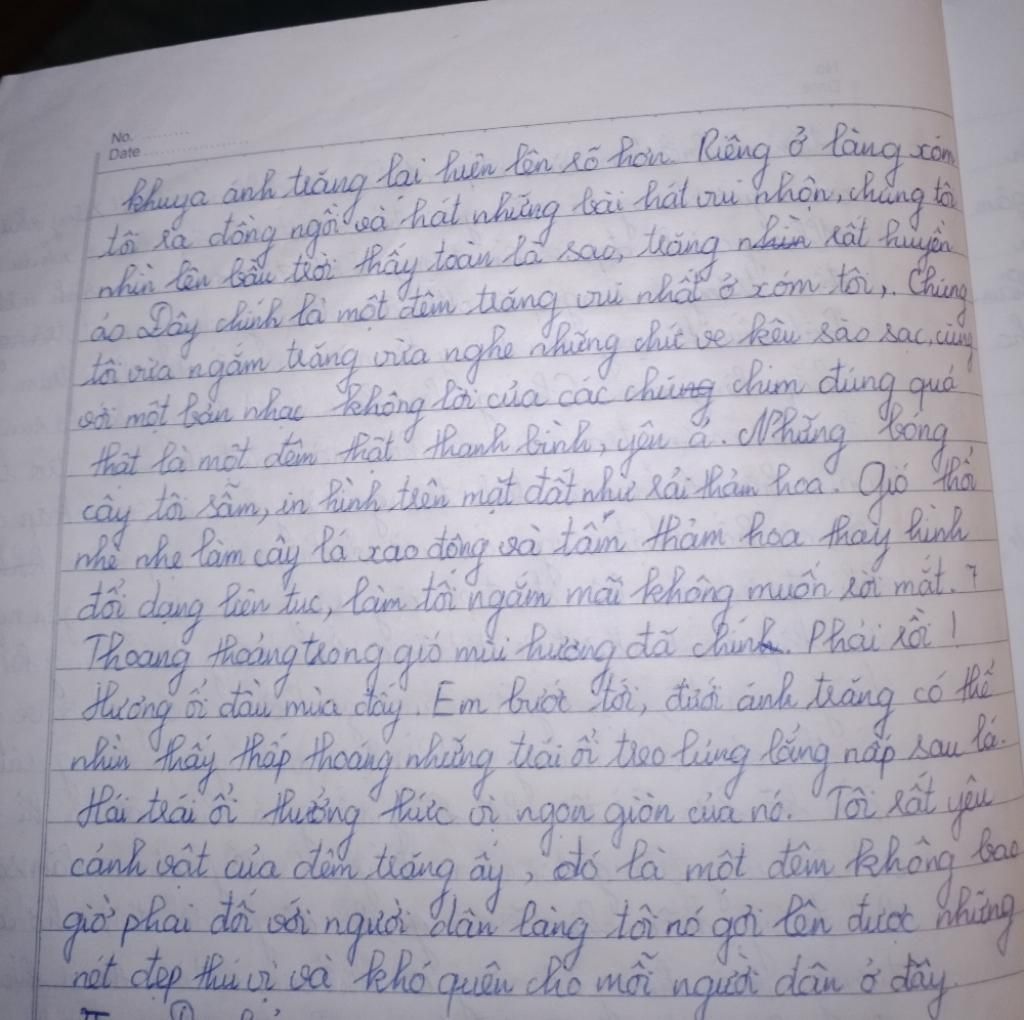 No.
Date
khuya ánh trăng lại hiện lên rõ hơn. Riêng ở làng xóm
tôi ra đồng ngồi và hát những bài hát vui nhộn, chúng tôi
nhìn lên bầu trời thấy toàn là sao, trăng nhìn rất huyền
ảo. Đây chính là một đêm trăng vui nhất ở xóm tôi,. Chúng
tôi vừa ngắm trăng vừa nghe những chíc ve kêu sào sạc, cùng
với một bản nhạc không lời của các chúng chim đúng quá
thật là một đêm thật thanh bình, yên ả. Những bóng
cây tôi sẫm, in hình trên mặt đất như rải thảm hoa. Gió thổi
nhè nhẹ làm cây lá xao động và tấm thảm hoa thay hình
đổi dạng liên tục, làm tôi ngắm mãi không muốn rời mắt.
Thoang thoảng trong gió mùi hương đã chính. Phải rồi!
Hương ổi đầu mùa đấy. Em bước tới, dưới ánh trăng có thể
nhìn thấy thấp thoáng những trái ổi treo lủng lẳng nấp sau lá.
Hái trái ổi thưởng thức vị ngon giòn của nó. Tôi rất yêu
cảnh vật của đêm trăng ấy, đó là một đêm không bao
giờ phai đối với người dân làng tôi nó gợi lên được những
nét đẹp thú vị và khó quên cho mỗi người dân ở đây.